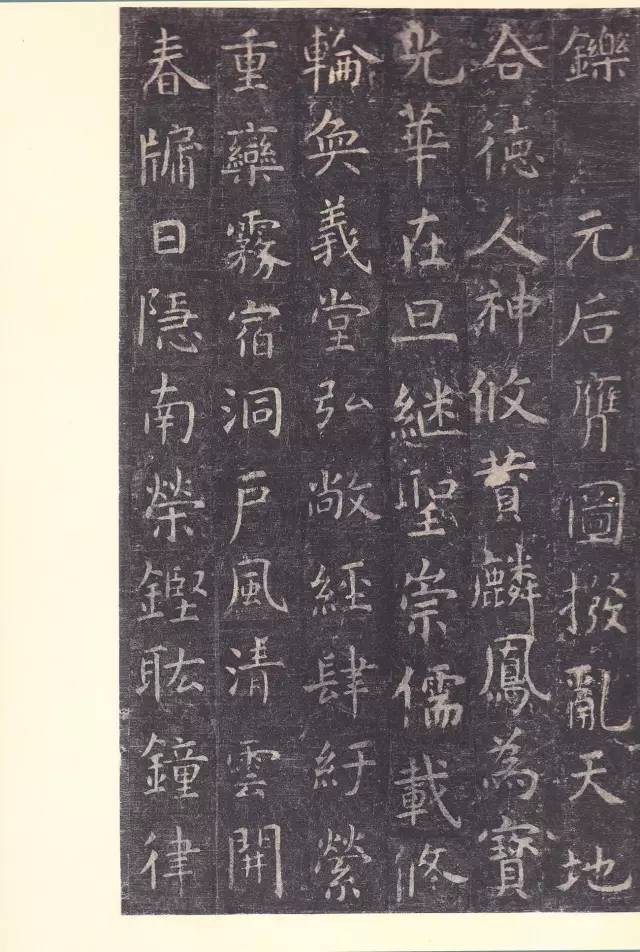 鑠　元后膺圖撥亂天地
合德人神攸賛麟鳳為寶
光華在旦継聖崇儒載修
輪奐義堂弘敞經肆紆縈
重欒霧宿洞戶風清雲開
春牖日隱南榮鏗耾鐘律